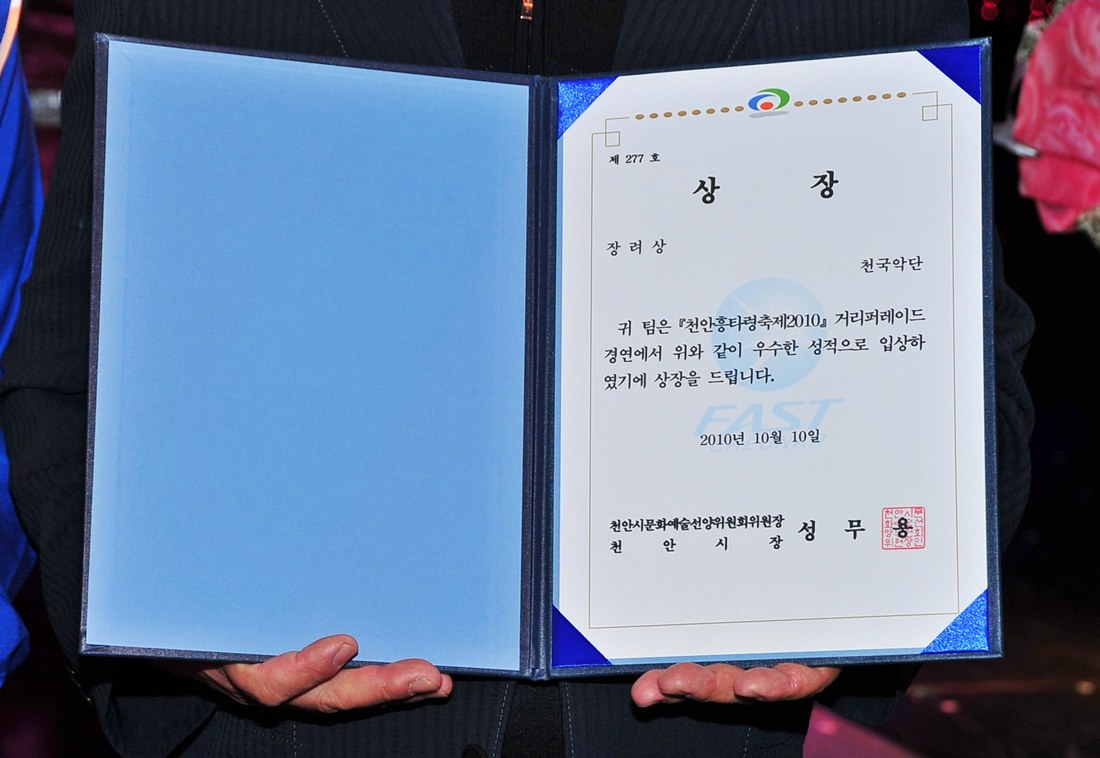 제 277 호
상 장
장 려 상
천국악단
귀 팀은 『천안흥타령축제2010』 거리퍼레이드
경연에서 위와 같이 우수한 성적으로 입상하
였기에 상장을 드립니다.
FAST
2010년 10월 10일
천안시문화예술선양위원회위원장
천 안 시 장 성 무 용